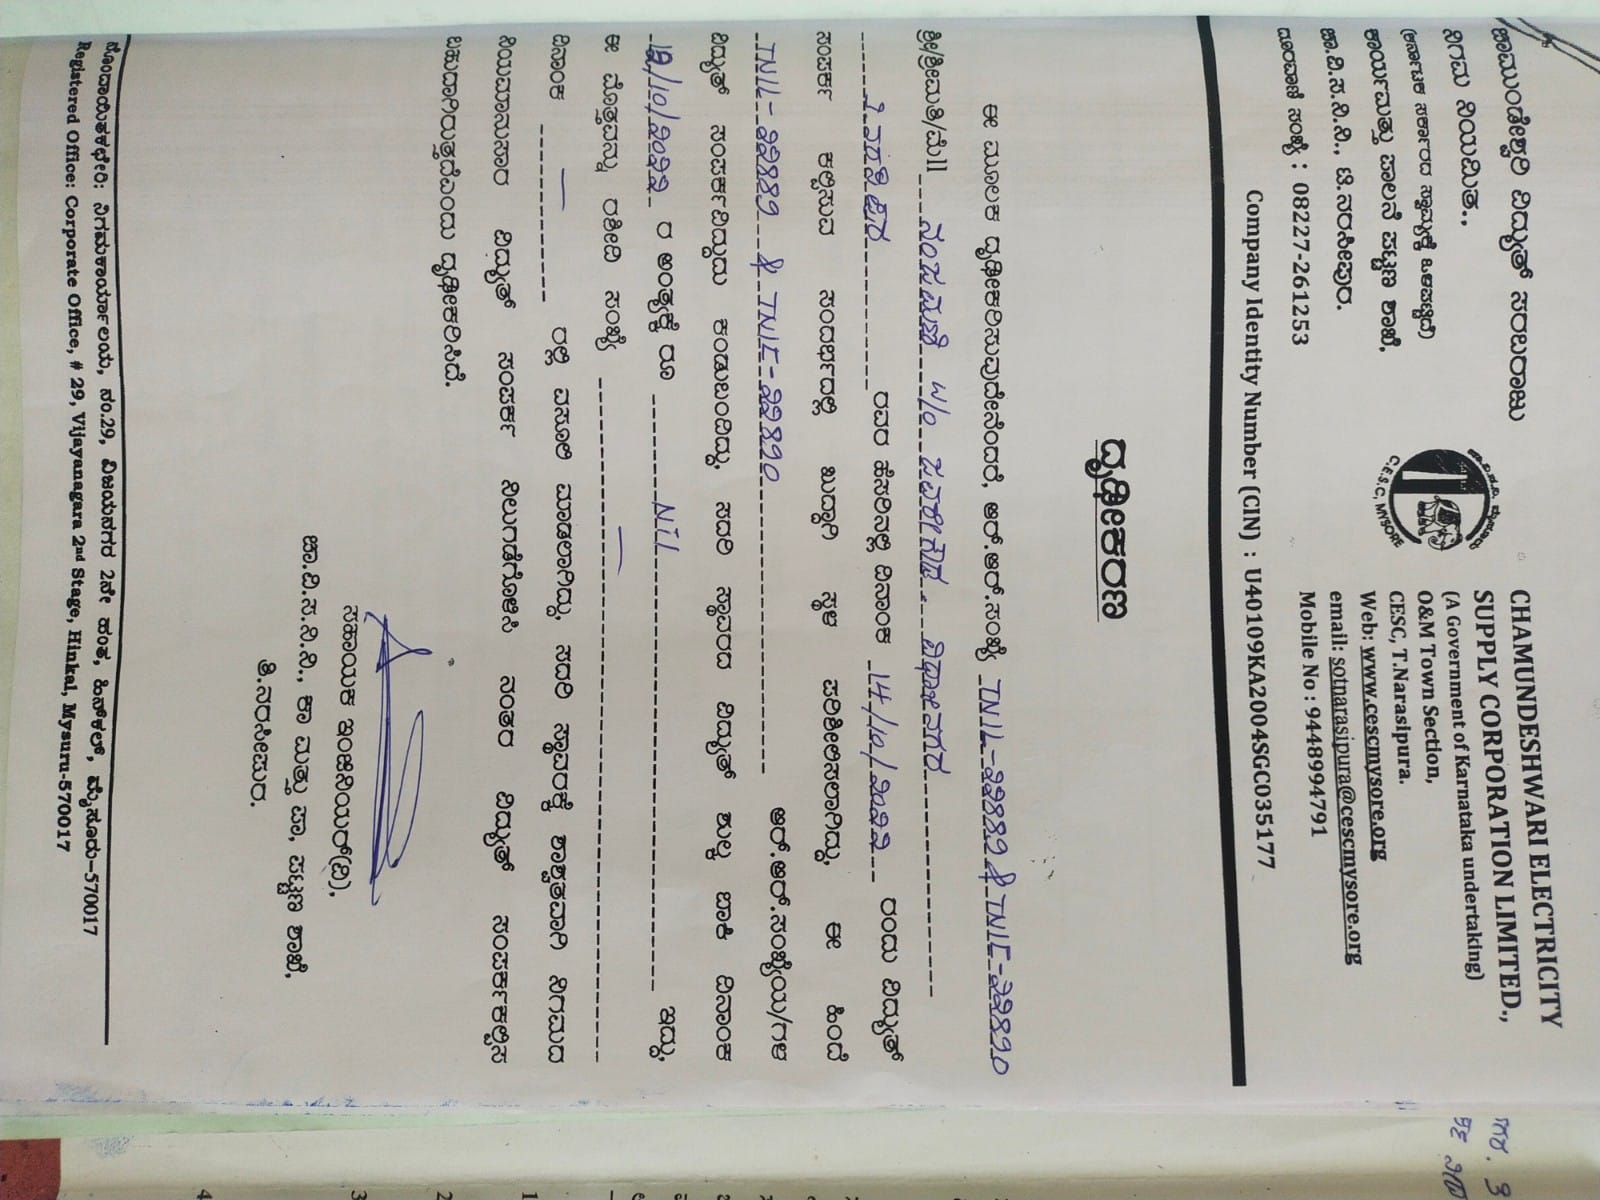 ಚಾಮುಂಡೇಶ್ವರಿ ವಿದ್ಯುತ್ ಸರಬರಾಜು
ನಿಗಮ ನಿಯಮಿತ.,
(ಕರ್ನಾಟಕ ಸರ್ಕಾರದ ಸ್ವಾಮ್ಯಕ್ಕೆ ಒಳಪಟ್ಟಿದೆ)
ಕಾರ್ಯಮತ್ತು ಪಾಲನೆ ಪಟ್ಟಣ ಶಾಖೆ,
ಚಾ.ವಿ.ಸ.ನಿ.ನಿ., ಟಿ.ನರಸೀಪುರ.
ದೂರವಾಣಿ ಸಂಖ್ಯೆ : 08227-261253
C.E.S.C, MYSORE
CHAMUNDESHWARI ELECTRICITY
SUPPLY CORPORATION LIMITED.,
(A Government of Karnataka undertaking)
O&M Town Section,
CESC, T.Narasipura.
Web: www.cescmysore.org
email: sotnarasipura@cescmysore.org
Mobile No : 9448994791
Company Identity Number (CIN) : U40109KA2004SGC035177
ದೃಢೀಕರಣ
ಈ ಮೂಲಕ ದೃಢೀಕರಿಸುವುದೇನೆಂದರೆ, ಆರ್.ಆರ್.ಸಂಖ್ಯೆ TNIL-೨೨೬೬೨ & TNIL-೨೨೬೨೦
ಶ್ರೀ/ಶ್ರೀಮತಿ/ಮೆ|| W/O
ರವರ ಹೆಸರಿನಲ್ಲಿ ದಿನಾಂಕ 14/10/೨೦೨೨ ರಂದು ವಿದ್ಯುತ್
ಸಂಪರ್ಕ ಕಲ್ಪಿಸುವ ಸಂದರ್ಭದಲ್ಲಿ ಖುದ್ದಾಗಿ ಸ್ಥಳ ಪರಿಶೀಲಿಸಲಾಗಿದ್ದು, ಈ ಹಿಂದೆ
& ಆರ್.ಆರ್.ಸಂಖ್ಯೆಯ/ಗಳ
ವಿದ್ಯುತ್ ಸಂಪರ್ಕವಿದ್ದುದು ಕಂಡುಬಂದಿದ್ದು, ಸದರಿ ಸ್ಥಾವರದ ವಿದ್ಯುತ್ ಶುಲ್ಕ ಬಾಕಿ ದಿನಾಂಕ
ರ ಅಂತ್ಯಕ್ಕೆ ರೂ NiL ಇದ್ದು,
ಈ ಮೊತ್ತವನ್ನು ರಶೀದಿ ಸಂಖ್ಯೆ —
ದಿನಾಂಕ — ರಲ್ಲಿ ವಸೂಲಿ ಮಾಡಲಾಗಿದ್ದು, ಸದರಿ ಸ್ಥಾವರಕ್ಕೆ ಶಾಶ್ವತವಾಗಿ ನಿಗಮದ
ನಿಯಮಾನುಸಾರ ವಿದ್ಯುತ್ ಸಂಪರ್ಕ ನಿಲುಗಡೆಗೊಳಿಸಿ ನಂತರ ವಿದ್ಯುತ್ ಸಂಪರ್ಕಕಲ್ಪಿಸ
ಬಹುದಾಗಿರುತ್ತದೆಂದು ದೃಢೀಕರಿಸಿದೆ.
ಸಹಾಯಕ ಇಂಜಿನಿಯರ್(ವಿ),
ಚಾ.ವಿ.ಸ.ನಿ.ನಿ., ಕಾ ಮತ್ತು ಪಾ, ಪಟ್ಟಣ ಶಾಖೆ,
ತಿ.ನರಸೀಪುರ.
ನೊಂದಾಯಿತಕಛೇರಿ: ನಿಗಮಕಾರ್ಯಾಲಯ, ನಂ.29, ವಿಜಯನಗರ 2ನೇ ಹಂತ, ಹಿನ್‌ಕಲ್, ಮೈಸೂರು-570017
Registered Office: Corporate Office, # 29, Vijayanagara 2nd Stage, Hinkal, Mysuru-570017
1
2
3
4